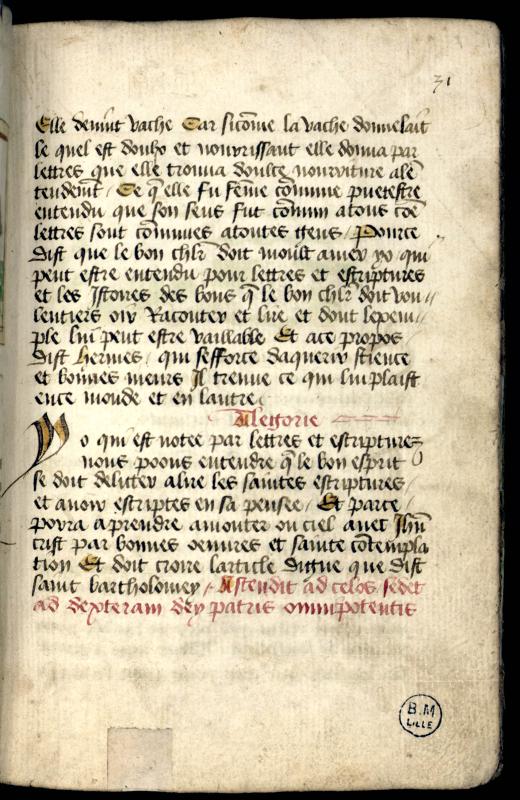 31
Elle devint vache Car sicōme la vache donne lait
le quel est doulz et nourrissant elle donna par
lettres que elle trouva doulce nourriture a lē
tendemt̄ / Ce q̄ elle fu fēme cōmune puet estre
entendu que son sens fut cōmun a tous cōe
lettres sont cōmunes a toutes gens / Pour ce
Dist que le bon chlr̄ doit moult amer yo qui
peut estre entendu pour lettres et escriptures
et les Istores des bons q̄ le bon chlr̄ doit vou //
lentiers oir Raconter et lire et dont lexem //
ple lui peut estre vaillable Et a ce propos
Dist hermes / qui sefforce daquerir science
et bonnes meurs Il treuve ce qui lui plaist
en ce monde et en lautre /
Alegorie
Yo qui est notee par lettres et escriptures
nous poons entendre q̄ le bon esprit
se doit deliter a lire les saintes escriptures /
et avoir escriptes en sa pensee / Et par ce /
porra aprendre a monter ou ciel avec Jhū
crist par bonnes oeuvres et sainte cōtempla
tion Et doit croire larticle digne que dist
saint bartholomey / Ascendit ad celos sedet
ad dexteram dey patris omnipotentis
B.M
LILLE